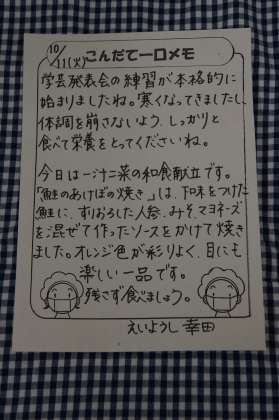 10/11(火) こんだて一口メモ
学芸発表会の練習が本格的に
始まりましたね。寒くなってきましたし、
体調を崩さないよう、しっかりと
食べて栄養をとってくださいね。
今日は一汁二菜の和食献立です。
「鮭のあけぼの焼き」は、下味をつけた
鮭に、すりおろした人参、みそ、マヨネーズ
を混ぜて作ったソースをかけて焼き
ました。オレンジ色が彩りよく、目にも
楽しい一品です。
残さず食べましょう。
えいようし 幸田